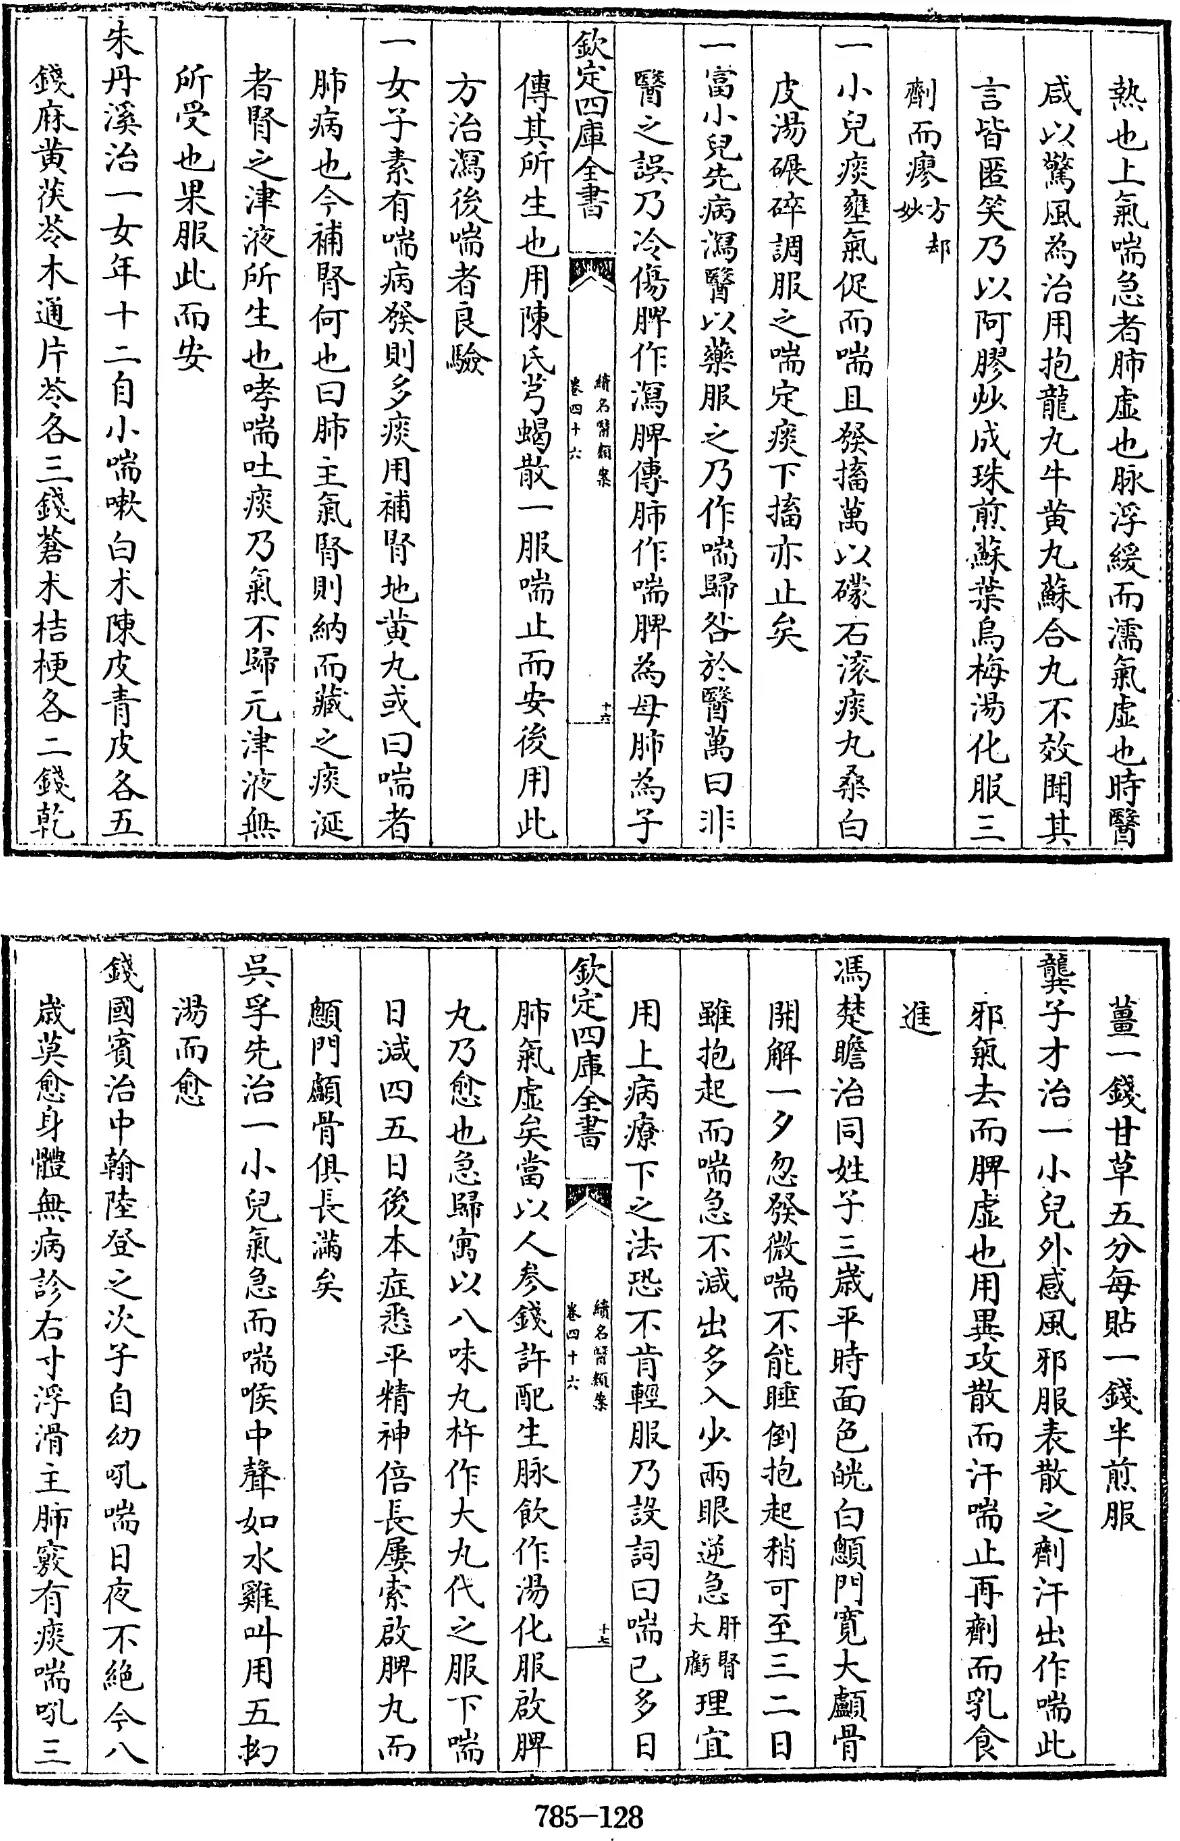 熱也上氣喘急者肺虛也脉浮緩而濡氣虛也時醫
咸以驚風為治用抱龍丸牛黄丸蘇合丸不效聞其
言皆匿笑乃以阿膠炒成珠煎蘇葉烏梅湯化服三
劑而瘳方却妙
一小兒痰壅氣促而喘且發搐萬以礞石滚痰丸桑白
皮湯碾碎調服之喘定痰下搐亦止矣
一富小兒先病瀉醫以藥服之乃作喘歸咎於醫萬曰非
醫之誤乃冷傷脾作瀉脾傳肺作喘脾為母肺為子
欽定四庫全書
續名醫類案
卷四十六
十六
傳其所生也用陳氏芎蝎散一服喘止而安後用此
方治瀉後喘者良驗
一女子素有喘病發則多痰用補腎地黄丸或曰喘者
肺病也今補腎何也曰肺主氣腎則納而藏之痰涎
者腎之津液所生也哮喘吐痰乃氣不歸元津液無
所受也果服此而安
朱丹溪治一女年十二自小喘嗽白术陳皮青皮各五
錢麻黄茯苓木通片芩各三錢蒼术桔梗各二錢乾
薑一錢甘草五分每貼一錢半煎服
龔子才治一小兒外感風邪服表散之劑汗出作喘此
邪氣去而脾虛也用異攻散而汗喘止再劑而乳食
進
馮楚瞻治同姓子三歲平時面色㿠白顖門寛大顱骨
開解一夕忽發微喘不能睡倒抱起稍可至三二日
雖抱起而喘急不減出多入少兩眼逆急肝腎大虧理宜
用上病療下之法恐不肯輕服乃設詞曰喘已多日
欽定四庫全書
續名醫類案
卷四十六
十七
肺氣虛矣當以人參錢許配生脉飲作湯化服啟脾
丸乃愈也急歸寓以八味丸杵作大丸代之服下喘
日減四五日後本症悉平精神倍長屢索啟脾丸而
顖門顱骨俱長滿矣
吳孚先治一小兒氣急而喘喉中聲如水雞叫用五抅
湯而愈
錢國賓治中翰陸登之次子自幼吼喘日夜不絶今八
歲莫愈身體無病診右寸浮滑主肺竅有痰喘吼三
785-128